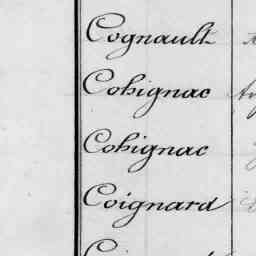 Cognault
Cohignac
Cohignac
Coignard